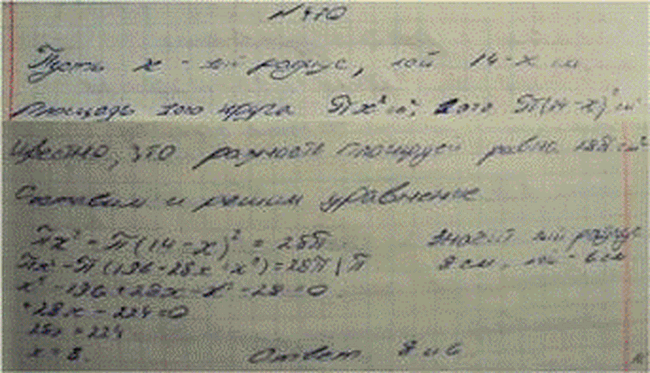 N 470
Пусть x - ый радиус, ой 14-x см
Площадь 1ого круга πx² см², 2ого π(14-x)² см²
что разность площадей равна 28π см²
Составим и решим уравнение
πx² - π(14-x)² = 28π
πx² - π(196-28x+x²)=28π | π
x² - 196 + 28x - x² - 28 = 0
28x - 224 = 0
28x = 224
x = 8.
Значит радиус
8 см, - 6 см
Ответ 8 и 6